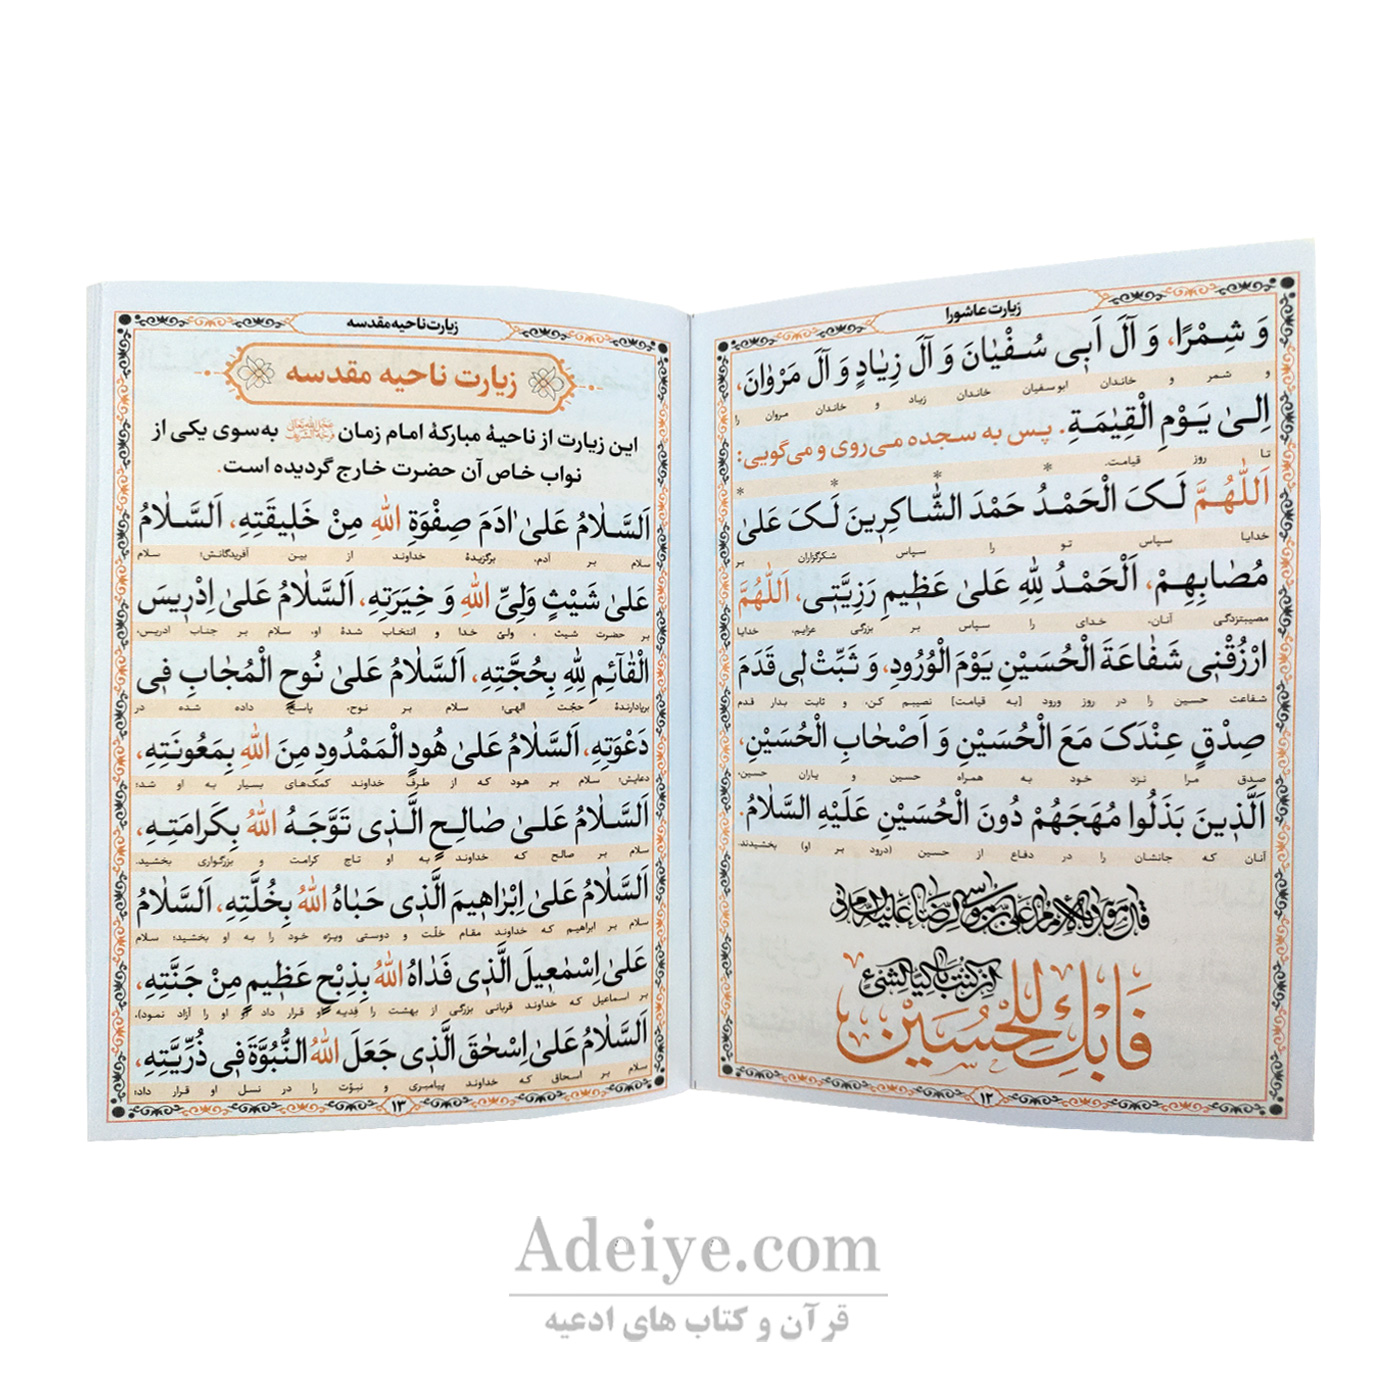 زیارت عاشورا
وَ شِـمْرًا، وَ آلَ اَبي سُـفْيٰانَ وَ آلَ زِيٰادٍ وَ آلَ مَرْوٰانَ،
و شمر و خاندان ابوسفیان خاندان زیاد و خاندان مروان را
اِلىٰ يَـوْمِ الْقِيٰمَـةِ. پـس به سـجده مـی‌روی و می‌گویی:
تا روز قیامت.
* * * *
اَللّٰهُـمَّ لَـكَ الْحَمْـدُ حَمْدَ الشّٰـاكِرينَ لَـكَ عَلىٰ
خدایا سپاس تو را سپاس شکرگزاران بر
مُصٰابِهِـمْ، اَلْحَمْـدُ لِلّٰهِ عَلىٰ عَظيمِ رَزِيَّتي، اَللّٰهُمَّ
مصیبتزدگی آنان، خدای را سپاس بر بزرگی عزایم، خدایا
ارْزُقْني شَفٰاعَةَ الْحُسَيْنِ يَوْمَ الْوُرُودِ، وَ ثَبِّتْ لي قَدَمَ
شفاعت حسین را در روز ورود [به قیامت] نصیبم کن، و ثابت بدار قدم
صِدْقٍ عِنْدَكَ مَعَ الْحُسَيْنِ وَ اَصْحٰابِ الْحُسَيْنِ،
صدق مرا نزد خود به همراه حسین و یاران حسین،
اَلَّذينَ بَذَلُوا مُهَجَهُمْ دُونَ الْحُسَيْنِ عَلَيْهِ السَّلٰامُ.
آنان که جانشان را در دفاع از حسین (درود بر او) بخشیدند.
فَابْكِ لِلْحُسَيْن
۱۲
زیارت ناحیه مقدسه
زیارت ناحیه مقدسه
این زیارت از ناحیهٔ مبارکهٔ امام زمان به‌سوی یکی از
نواب خاص آن حضرت خارج گردیده است.
اَلسَّـلٰامُ عَلىٰ اٰدَمَ صِفْوَةِ اللّٰهِ مِنْ خَليقَتِهِ، اَلسَّـلٰامُ
سلام بر آدم، برگزیدهٔ خداوند از بین آفریدگانش؛ سلام
عَلىٰ شَيْثٍ وَلِيِّ اللّٰهِ وَ خِيَرَتِهِ، اَلسَّلٰامُ عَلىٰ اِدْريسَ
بر حضرت شیث ، ولیّ خدا و انتخاب شدهٔ او، سلام بر جناب ادریس،
الْقٰآئِمِ لِلّٰهِ بِحُجَّتِهِ، اَلسَّلٰامُ عَلىٰ نُوحٍ الْمُجٰابِ في
برپادارندهٔ حجّت الهی؛ سلام بر نوح، پاسخ داده شده در
دَعْوَتِهِ، اَلسَّلٰامُ عَلىٰ هُودٍ الْمَمْدُودِ مِنَ اللّٰهِ بِمَعُونَتِهِ،
دعایش؛ سلام بر هود که از طرف خداوند کمک‌های بسیار به او شد؛
اَلسَّـلٰامُ عَلـىٰ صٰالِـحٍ الَّـذي تَوَّجَـهُ اللّٰهُ بِكَرامَتِـهِ،
سلام بر صالح که خداوند به او تاج کرامت و بزرگواری بخشید.
اَلسَّلٰامُ عَلىٰ اِبْرٰاهيمَ الَّذي حَبٰاهُ اللّٰهُ بِخُلَّتِهِ، اَلسَّلٰامُ
سلام بر ابراهیم که خداوند مقام خلّت و دوستی ویژه خود را به او بخشید؛ سلام
عَلىٰ اِسْمٰعيلَ الَّذي فَدٰاهُ اللّٰهُ بِذِبْحٍ عَظيمٍ مِنْ جَنَّتِهِ،
بر اسماعیل که خداوند قربانی بزرگی از بهشت را فدیه و قرار داد (و او را آزاد نمود).
اَلسَّلٰامُ عَلىٰ اِسْحٰقَ الَّذي جَعَلَ اللّٰهُ النُّبُوَّةَ في ذُرِّيَّتِهِ،
سلام بر اسحاق که خداوند پیامبری و نبوّت را در نسل او قرار داد؛
۱۳
Adeiye.com
قرآن و کتاب های ادعیه